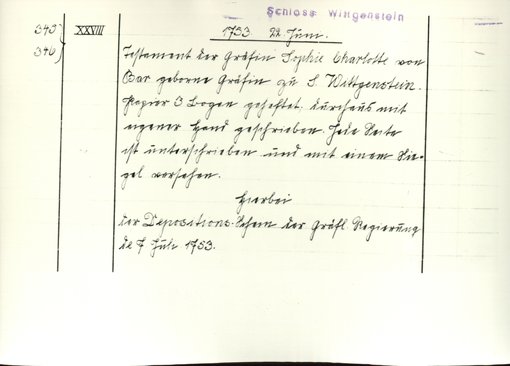 Schloss Wittgenstein
345
346
XXVIII
1753. 22. Juni.
Testament der Gräfin Sophie Charlotte von
Bar geborne Gräfin zu S. Wittgenstein.
Papier 3 Bogen geheftet, durchaus mit
eigener Hand geschrieben. Jede Seite
ist unterschrieben und mit einem Sie-
gel versehen.
Hierbei
der Depositions-Schein der Gräfl. Regierung
de 7 Juli 1753.